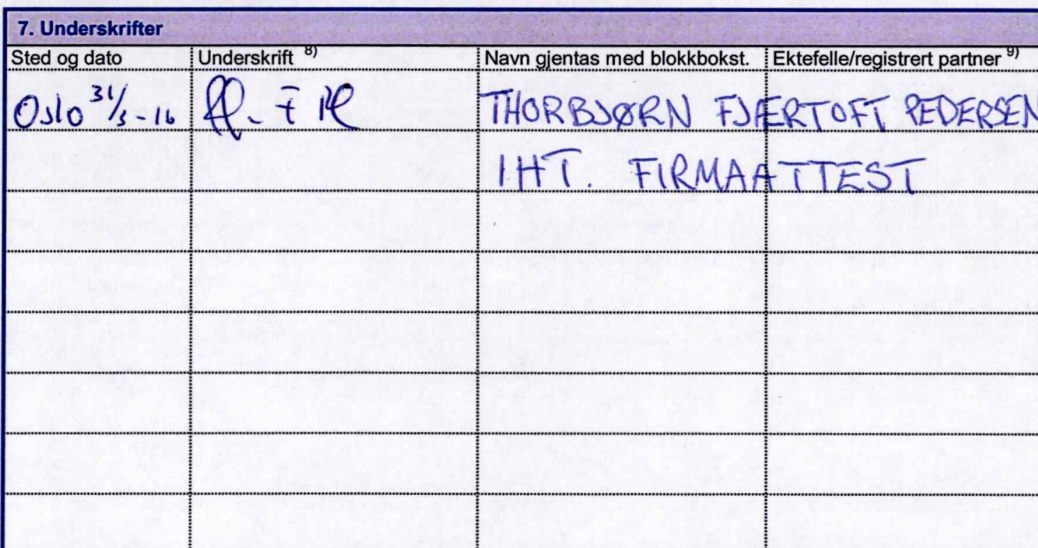 7. Underskrifter
Sted og dato Underskrift 8) Navn gjentas med blokkbokst. Ektefelle/registrert partner 9)
Oslo 31/3-16 THORBJØRN FJÆRTOFT PEDERSEN
IHT. FIRMAATTEST